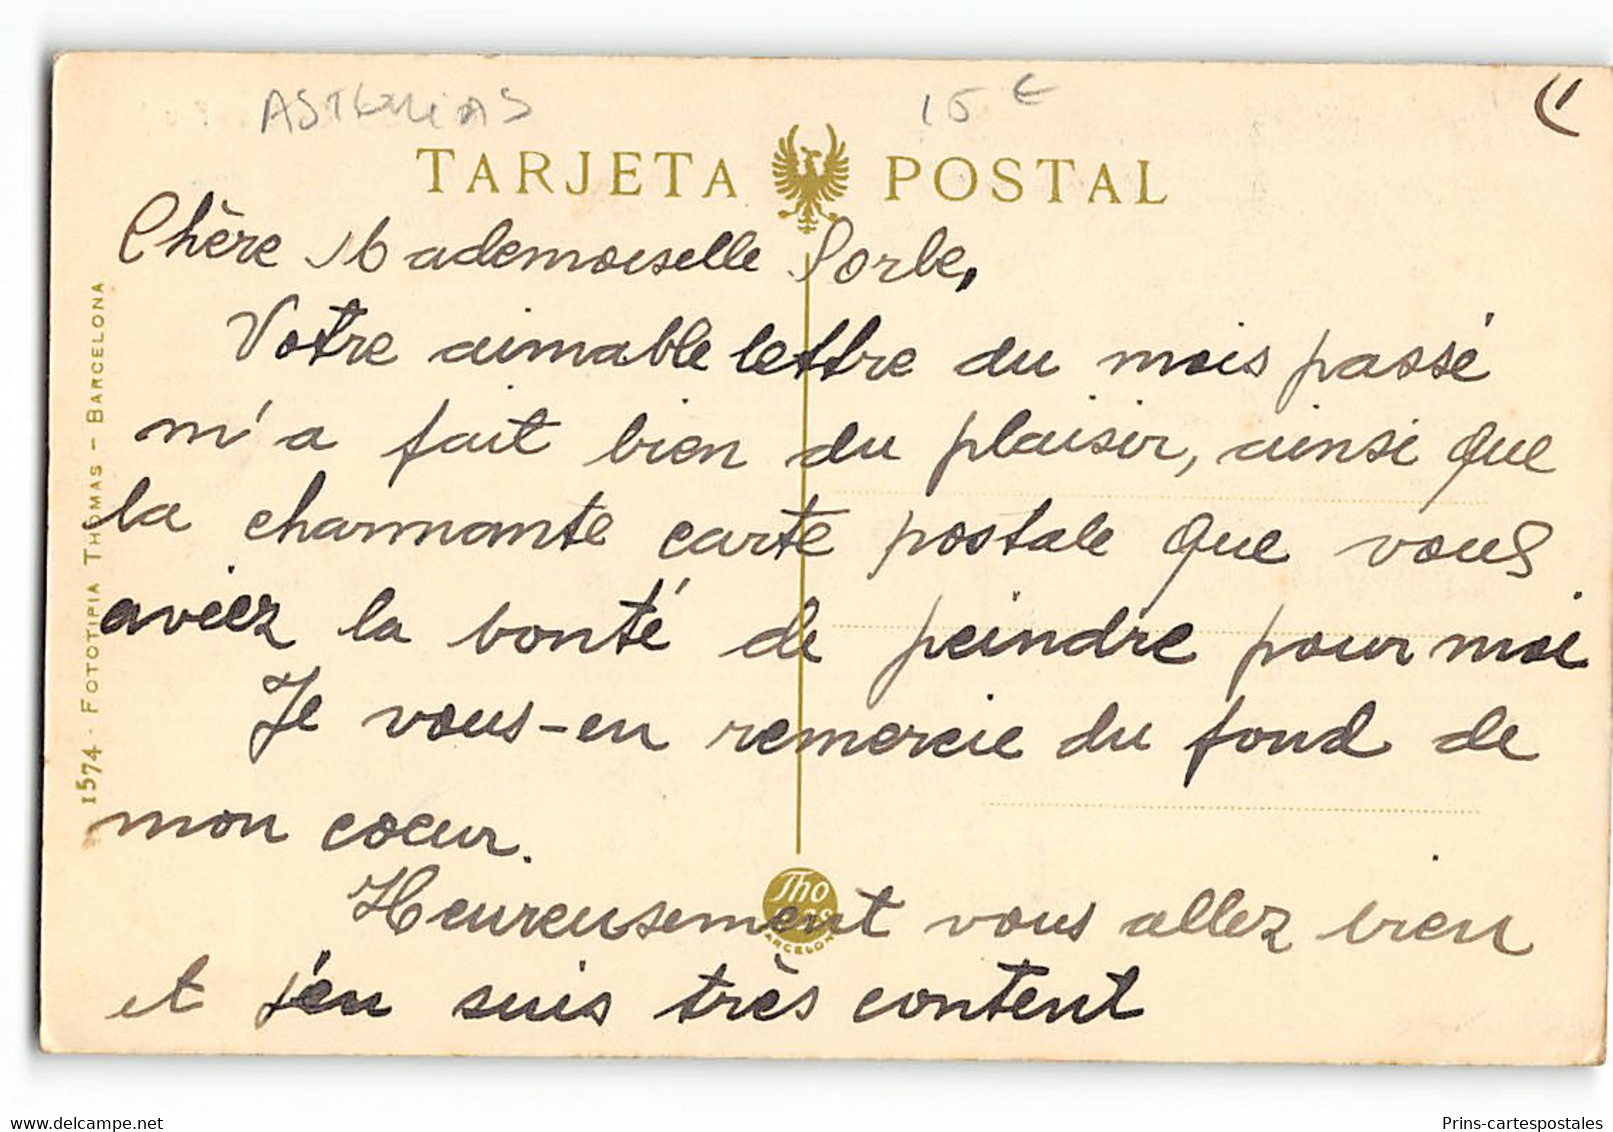 ASTURIAS 15 €
TARJETA POSTAL
Chère Mademoiselle Sorbe,
Votre aimable lettre du mois passé
m'a fait bien du plaisir, ainsi que
la charmante carte postale que vous
aviez la bonté de peindre pour moi
Je vous-en remercie du fond de
mon coeur.
Heureusement vous allez bien
et j'en suis très content
1574 - FOTOTIPIA THOMAS - BARCELONA
Tho
BARCELONA
delcampe.net
Prins-cartespostales